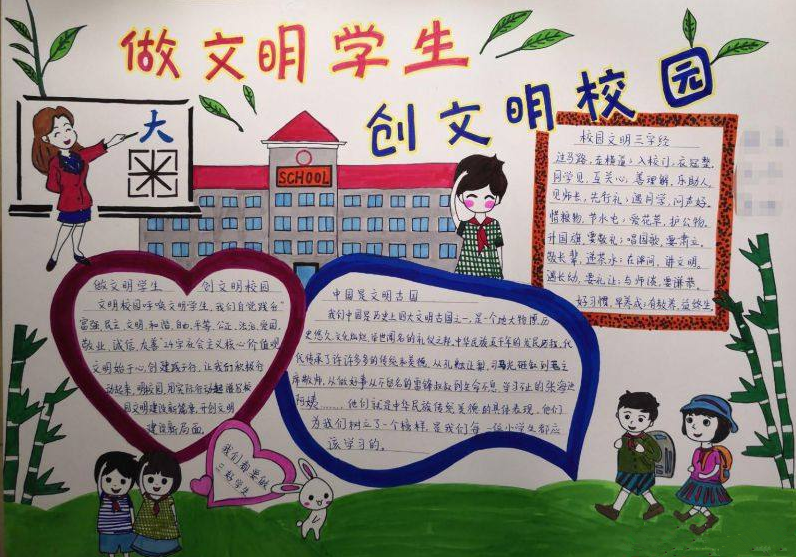 做文明学生
创文明校园
大
SCHOOL
校园文明三字经
过马路,左横道;入校门,衣冠整。
同学见,互关心;善理解,乐助人。
见师长,先行礼;遇同学,问声好。
惜粮物,节水电;爱花草,护公物。
升国旗,要敬礼;唱国歌,要肃立。
敬长辈,递茶水;在课间,讲文明。
遇长幼,要礼让;与师谈,要谦恭。
好习惯,早养成;有教养,益终生。
做文明学生 创文明校园
文明校园呼唤文明学生,我们自觉践行“
富强,民主,文明,和谐,自由,平等,公正,法治,爱国,
敬业,诚信,友善”24字社会主义核心价值观
文明始于心,创建践于行,让我们积极行
动起来,明校园,用实际行动
园文明建设新篇章,开创文明
建设新局面。
中国是文明古国
我们中国是历史上四大文明古国之一,是一个地大物博,历
史悠久,文化灿烂,举世闻名的礼仪之邦,中华民族五千年的发展历程,代
代传承了许许多多的传统美德。从孔融让梨,司马光砸缸到毛主
席敬师,从做好事从不留名的雷锋叔叔到生命不息,学习不止的张海迪
阿姨……,他们就是中华民族传统美德的具体表现,他们
为我们树立了一个榜样,是我们每一位小学生都应
该学习的。
我们都要做
三好学生